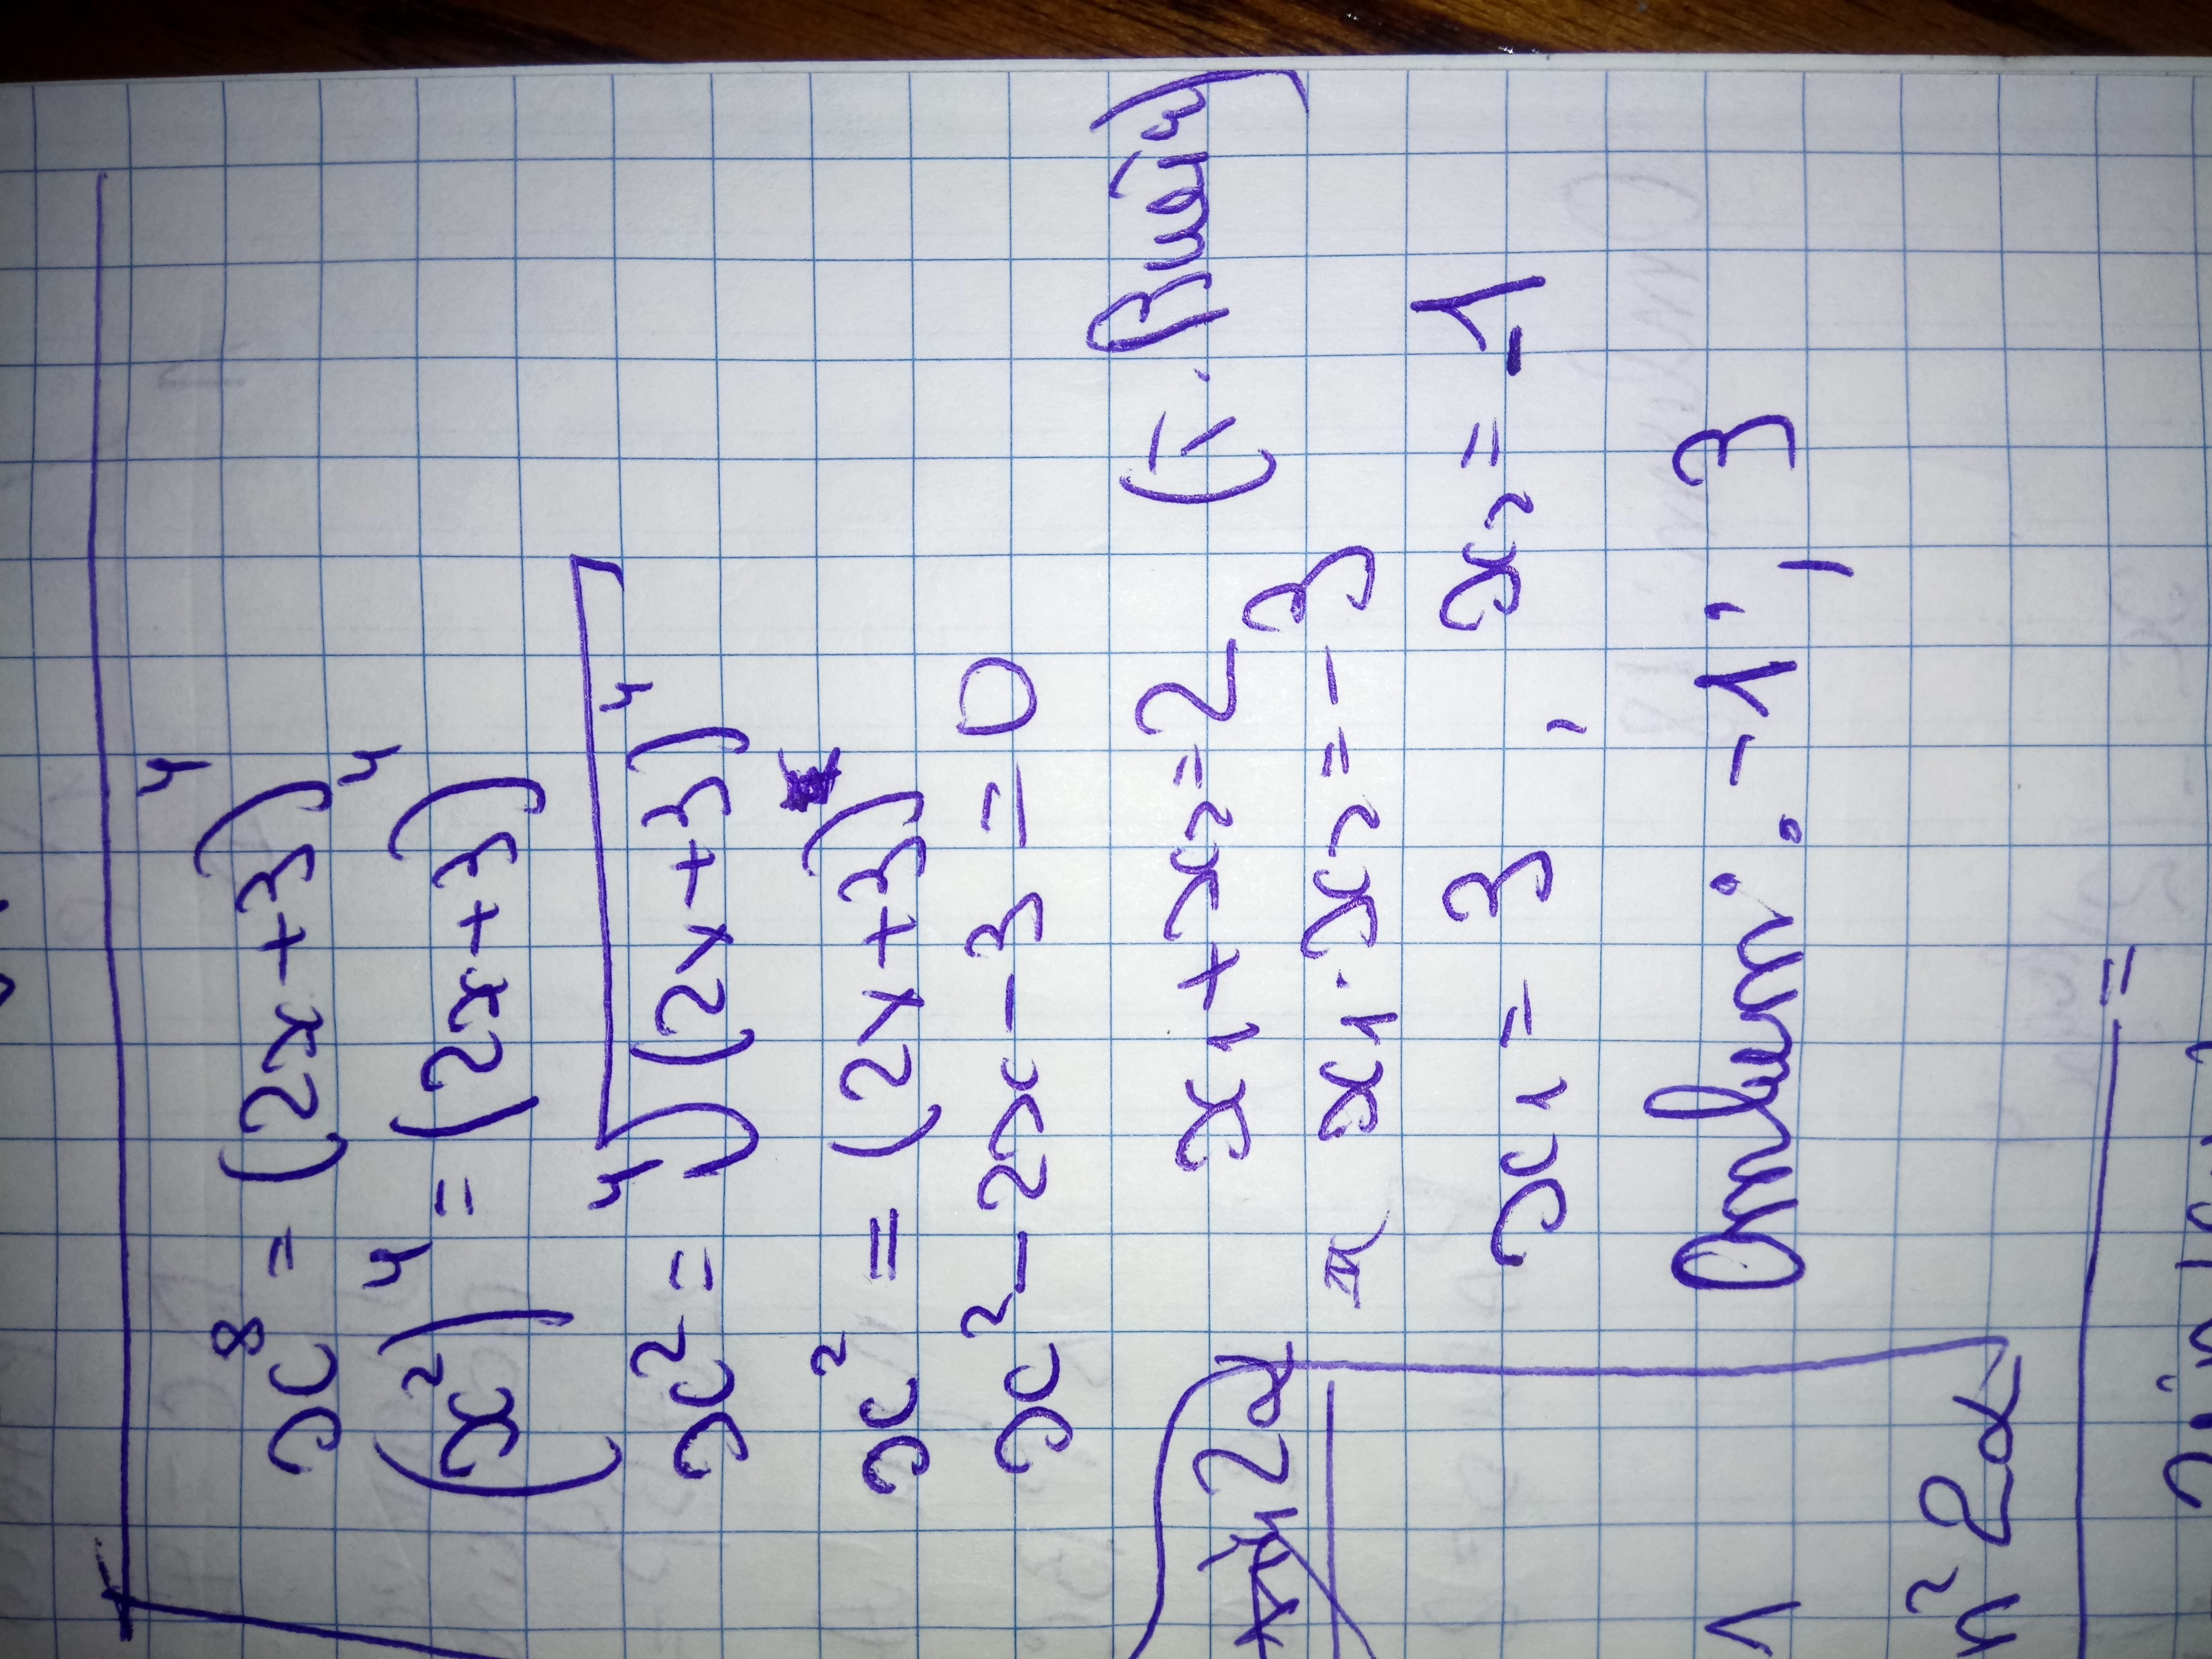 x⁸ = (2x+3)⁴
(x²)⁴ = (2x+3)⁴
x² = ⁴√(2x+3)⁴
x² = (2x+3)
x² - 2x - 3 = 0
x₁ + x₂ = 2 (т. Виета)
x₁ · x₂ = -3
x₁ = 3, x₂ = -1
Ответ: -1; 3